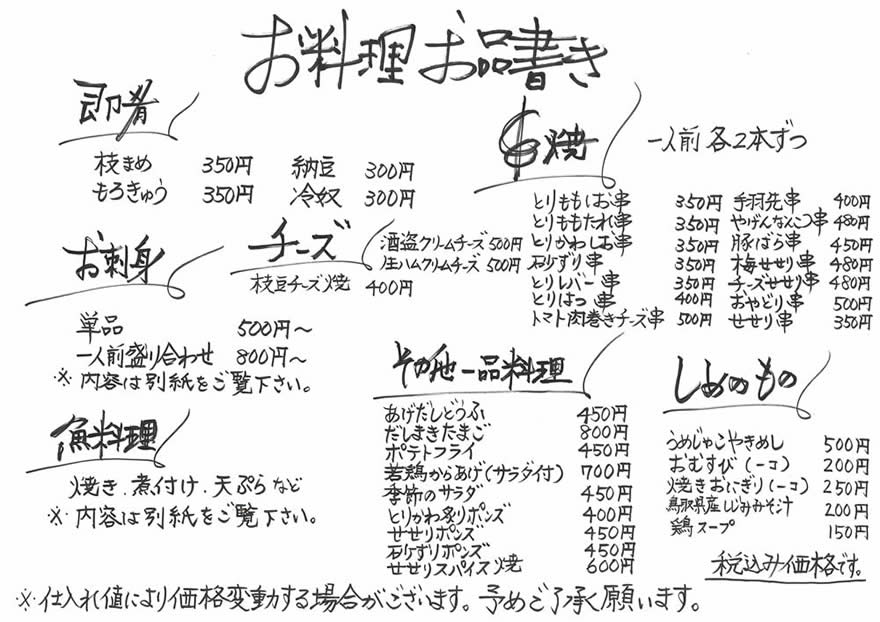 お料理お品書き
即肴
枝まめ 350円 納豆 300円
もろきゅう 350円 冷奴 300円
お刺身
単品 500円〜
一人前盛り合わせ 800円〜
※ 内容は別紙をご覧下さい。
チーズ
酒盗クリームチーズ 500円
生ハムクリームチーズ 500円
枝豆チーズ焼 400円
魚料理
焼き、煮付け、天ぷらなど
※ 内容は別紙をご覧下さい。
串焼 一人前 各2本ずつ
とりももしお串 350円 手羽先串 400円
とりももたれ串 350円 やげんなんこつ串 480円
とりかわしお串 350円 豚ばら串 450円
砂ずり串 350円 梅せせり串 480円
とりレバー串 350円 チーズせせり串 480円
とりはつ串 400円 おやどり串 500円
トマト肉巻きチーズ串 500円 せせり串 350円
その他一品料理
あげだしどうふ 450円
だしまきたまご 800円
ポテトフライ 450円
若鶏からあげ(サラダ付) 700円
季節のサラダ 450円
とりかわ炙りポンズ 400円
せせりポンズ 450円
砂ずりポンズ 450円
せせりスパイス焼 600円
しめのもの
うめじゃこやきめし 500円
おむすび(一コ) 200円
焼きおにぎり(一コ) 250円
鳥取県産しじみみそ汁 200円
鶏スープ 150円
税込み価格です。
※仕入れ値により価格変動する場合がございます。予めご了承く願います。